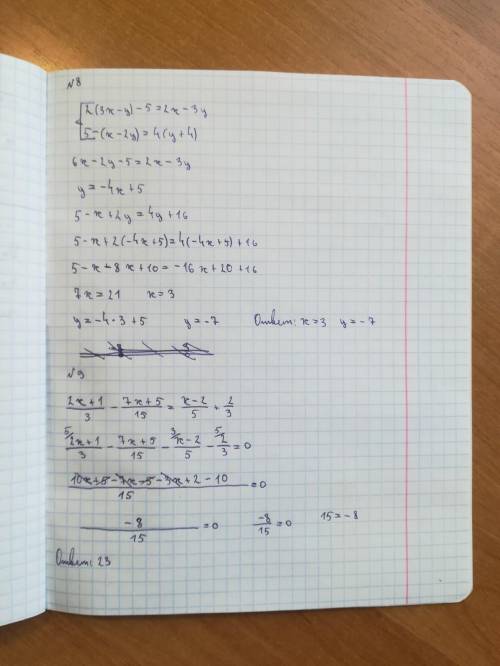 №8
2(3x-y)-5=2x-3y
5-(x-2y)=4(y+4)
6x-2y-5=2x-3y
y=-4x+5
5-x+2y=4y+16
5-x+2(-4x+5)=4(-4x+5)+16
5-x-8x+10=-16x+20+16
7x=21 x=3
y=-4·3+5 y=-7 Ответ: x=3 y=-7
№9
(2x+1)/3 - (7x+5)/15 = (x-2)/5 + 2/3
5/ (2x+1)/3 - (7x+5)/15 - 3/ (x-2)/5 - 5/ 2/3 =0
(10x+5-7x-5-3x+2-10)/15 =0
-8/15 =0 -8/15 =0 15=-8
Ответ: 23